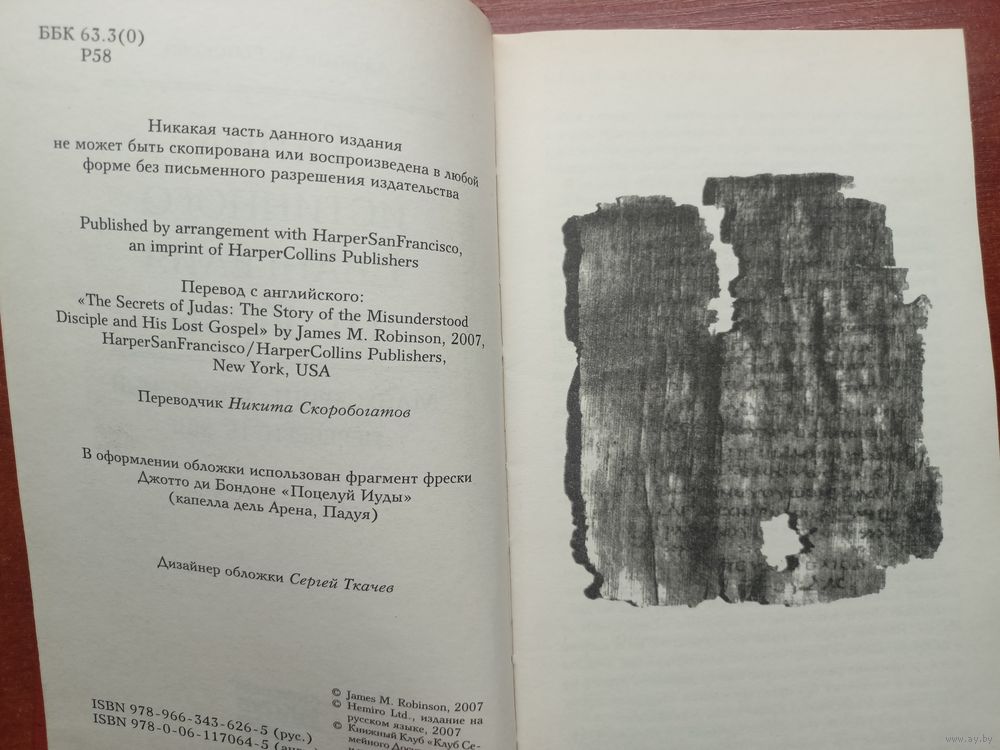 ББК 63.3(0)
Р58
Никакая часть данного издания
не может быть скопирована или воспроизведена в любой
форме без письменного разрешения издательства
Published by arrangement with HarperSanFrancisco,
an imprint of HarperCollins Publishers
Перевод с английского:
«The Secrets of Judas: The Story of the Misunderstood
Disciple and His Lost Gospel» by James M. Robinson, 2007,
HarperSanFrancisco/HarperCollins Publishers,
New York, USA
Переводчик Никита Скоробогатов
В оформлении обложки использован фрагмент фрески
Джотто ди Бондоне «Поцелуй Иуды»
(капелла дель Арена, Падуя)
Дизайнер обложки Сергей Ткачев
© James M. Robinson, 2007
© Hemiro Ltd., издание на
русском языке, 2007
© Книжный Клуб «Клуб Се-
мейного
ISBN 978-966-343-626-5 (рус.)
ISBN 978-0-06-117064-5
www.ay.by